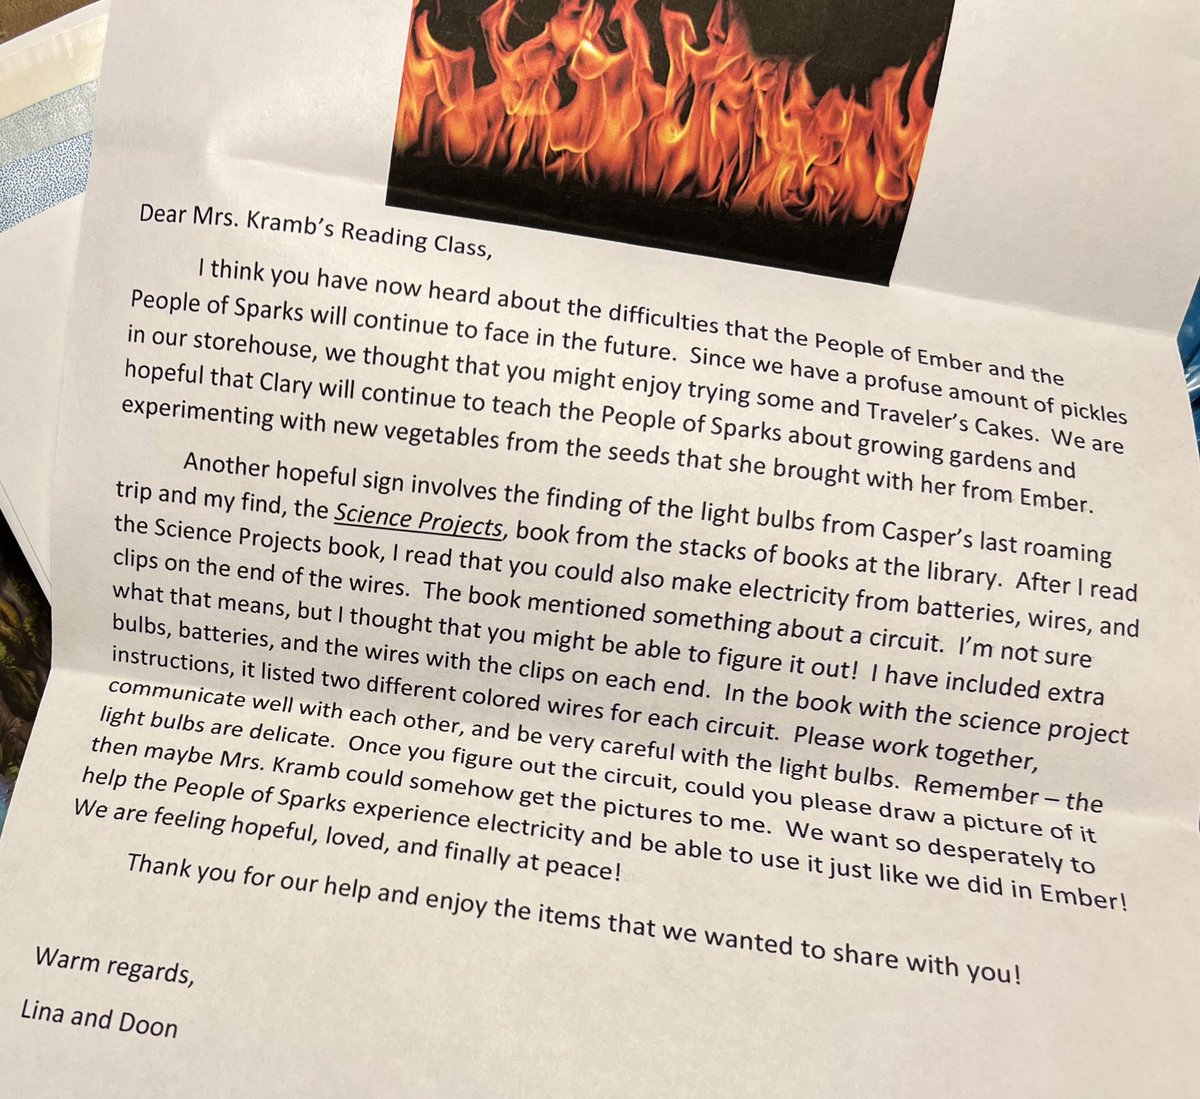 Dear Mrs. Kramb's Reading Class,
I think you have now heard about the difficulties that the People of Ember and the
People of Sparks will continue to face in the future. Since we have a profuse amount of pickles
in our storehouse, we thought that you might enjoy trying some and Traveler's Cakes. We are
hopeful that Clary will continue to teach the People of Sparks about growing gardens and
experimenting with new vegetables from the seeds that she brought with her from Ember.
Another hopeful sign involves the finding of the light bulbs from Casper's last roaming
trip and my find, the Science Projects, book from the stacks of books at the library. After I read
the Science Projects book, I read that you could also make electricity from batteries, wires, and
clips on the end of the wires. The book mentioned something about a circuit. I'm not sure
what that means, but I thought that you might be able to figure it out! I have included extra
bulbs, batteries, and the wires with the clips on each end. In the book with the science project
instructions, it listed two different colored wires for each circuit. Please work together,
communicate well with each other, and be very careful with the light bulbs. Remember – the
light bulbs are delicate. Once you figure out the circuit, could you please draw a picture of it
then maybe Mrs. Kramb could somehow get the pictures to me. We want so desperately to
help the People of Sparks experience electricity and be able to use it just like we did in Ember!
We are feeling hopeful, loved, and finally at peace!
Thank you for our help and enjoy the items that we wanted to share with you!
Warm regards,
Lina and Doon